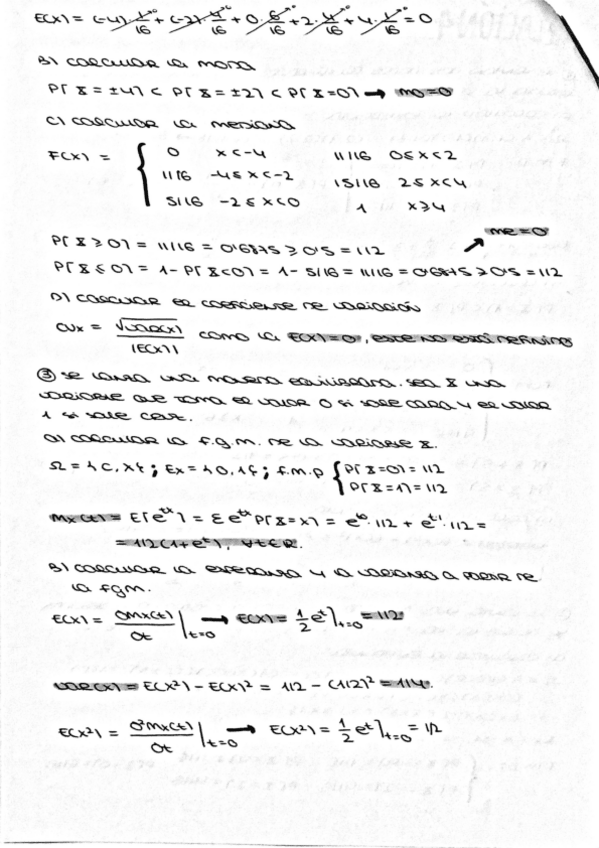 E(X) = (-4)·1/16 + (-2)·4/16 + 0·6/16 + 2·4/16 + 4·1/16 = 0
B) CALCULAR LA MODA
P[X = ±4] < P[X = ±2] < P[X = 0] → Mo = 0
C) CALCULAR LA MEDIANA
F(x) = { 0 x < -4 11/16 0 ≤ x < 2
1/16 -4 ≤ x < -2 15/16 2 ≤ x < 4
5/16 -2 ≤ x < 0 1 x ≥ 4
Me = 0
P[X ≥ 0] = 11/16 = 0'6875 ≥ 0'5 = 1/2
P[X ≤ 0] = 1 - P[X < 0] = 1 - 5/16 = 11/16 = 0'6875 ≥ 0'5 = 1/2
D) CALCULAR EL COEFICIENTE DE VARIACIÓN
CVx = √Var(x) / |E(X)| COMO LA E(X) = 0, ESTE NO ESTÁ DEFINIDO
③ SE LANZA UNA MONEDA EQUILIBRADA. SEA X UNA
VARIABLE QUE TOMA EL VALOR 0 SI SALE CARA Y EL VALOR
1 SI SALE CRUZ.
A) CALCULAR LA F.G.M. DE LA VARIABLE X.
Ω = {C, X}; Ex = {0, 1}; f.m.p { P[X = 0] = 1/2
P[X = 1] = 1/2
Mx(t) = E[e^tx] = Σ e^tx P[X = x] = e^t0 · 1/2 + e^t1 · 1/2 =
= 1/2 (1 + e^t), ∀t ∈ R.
B) CALCULAR LA ESPERANZA Y LA VARIANZA A PARTIR DE
LA FGM.
E(X) = ∂Mx(t)/∂t ]t=0 → E(X) = 1/2 e^t ]t=0 = 1/2
Var(x) = E(X²) - E(X)² = 1/2 - (1/2)² = 1/4.
E(X²) = ∂²Mx(t)/∂t ]t=0 → E(X²) = 1/2 e^t ]t=0 = 1/2